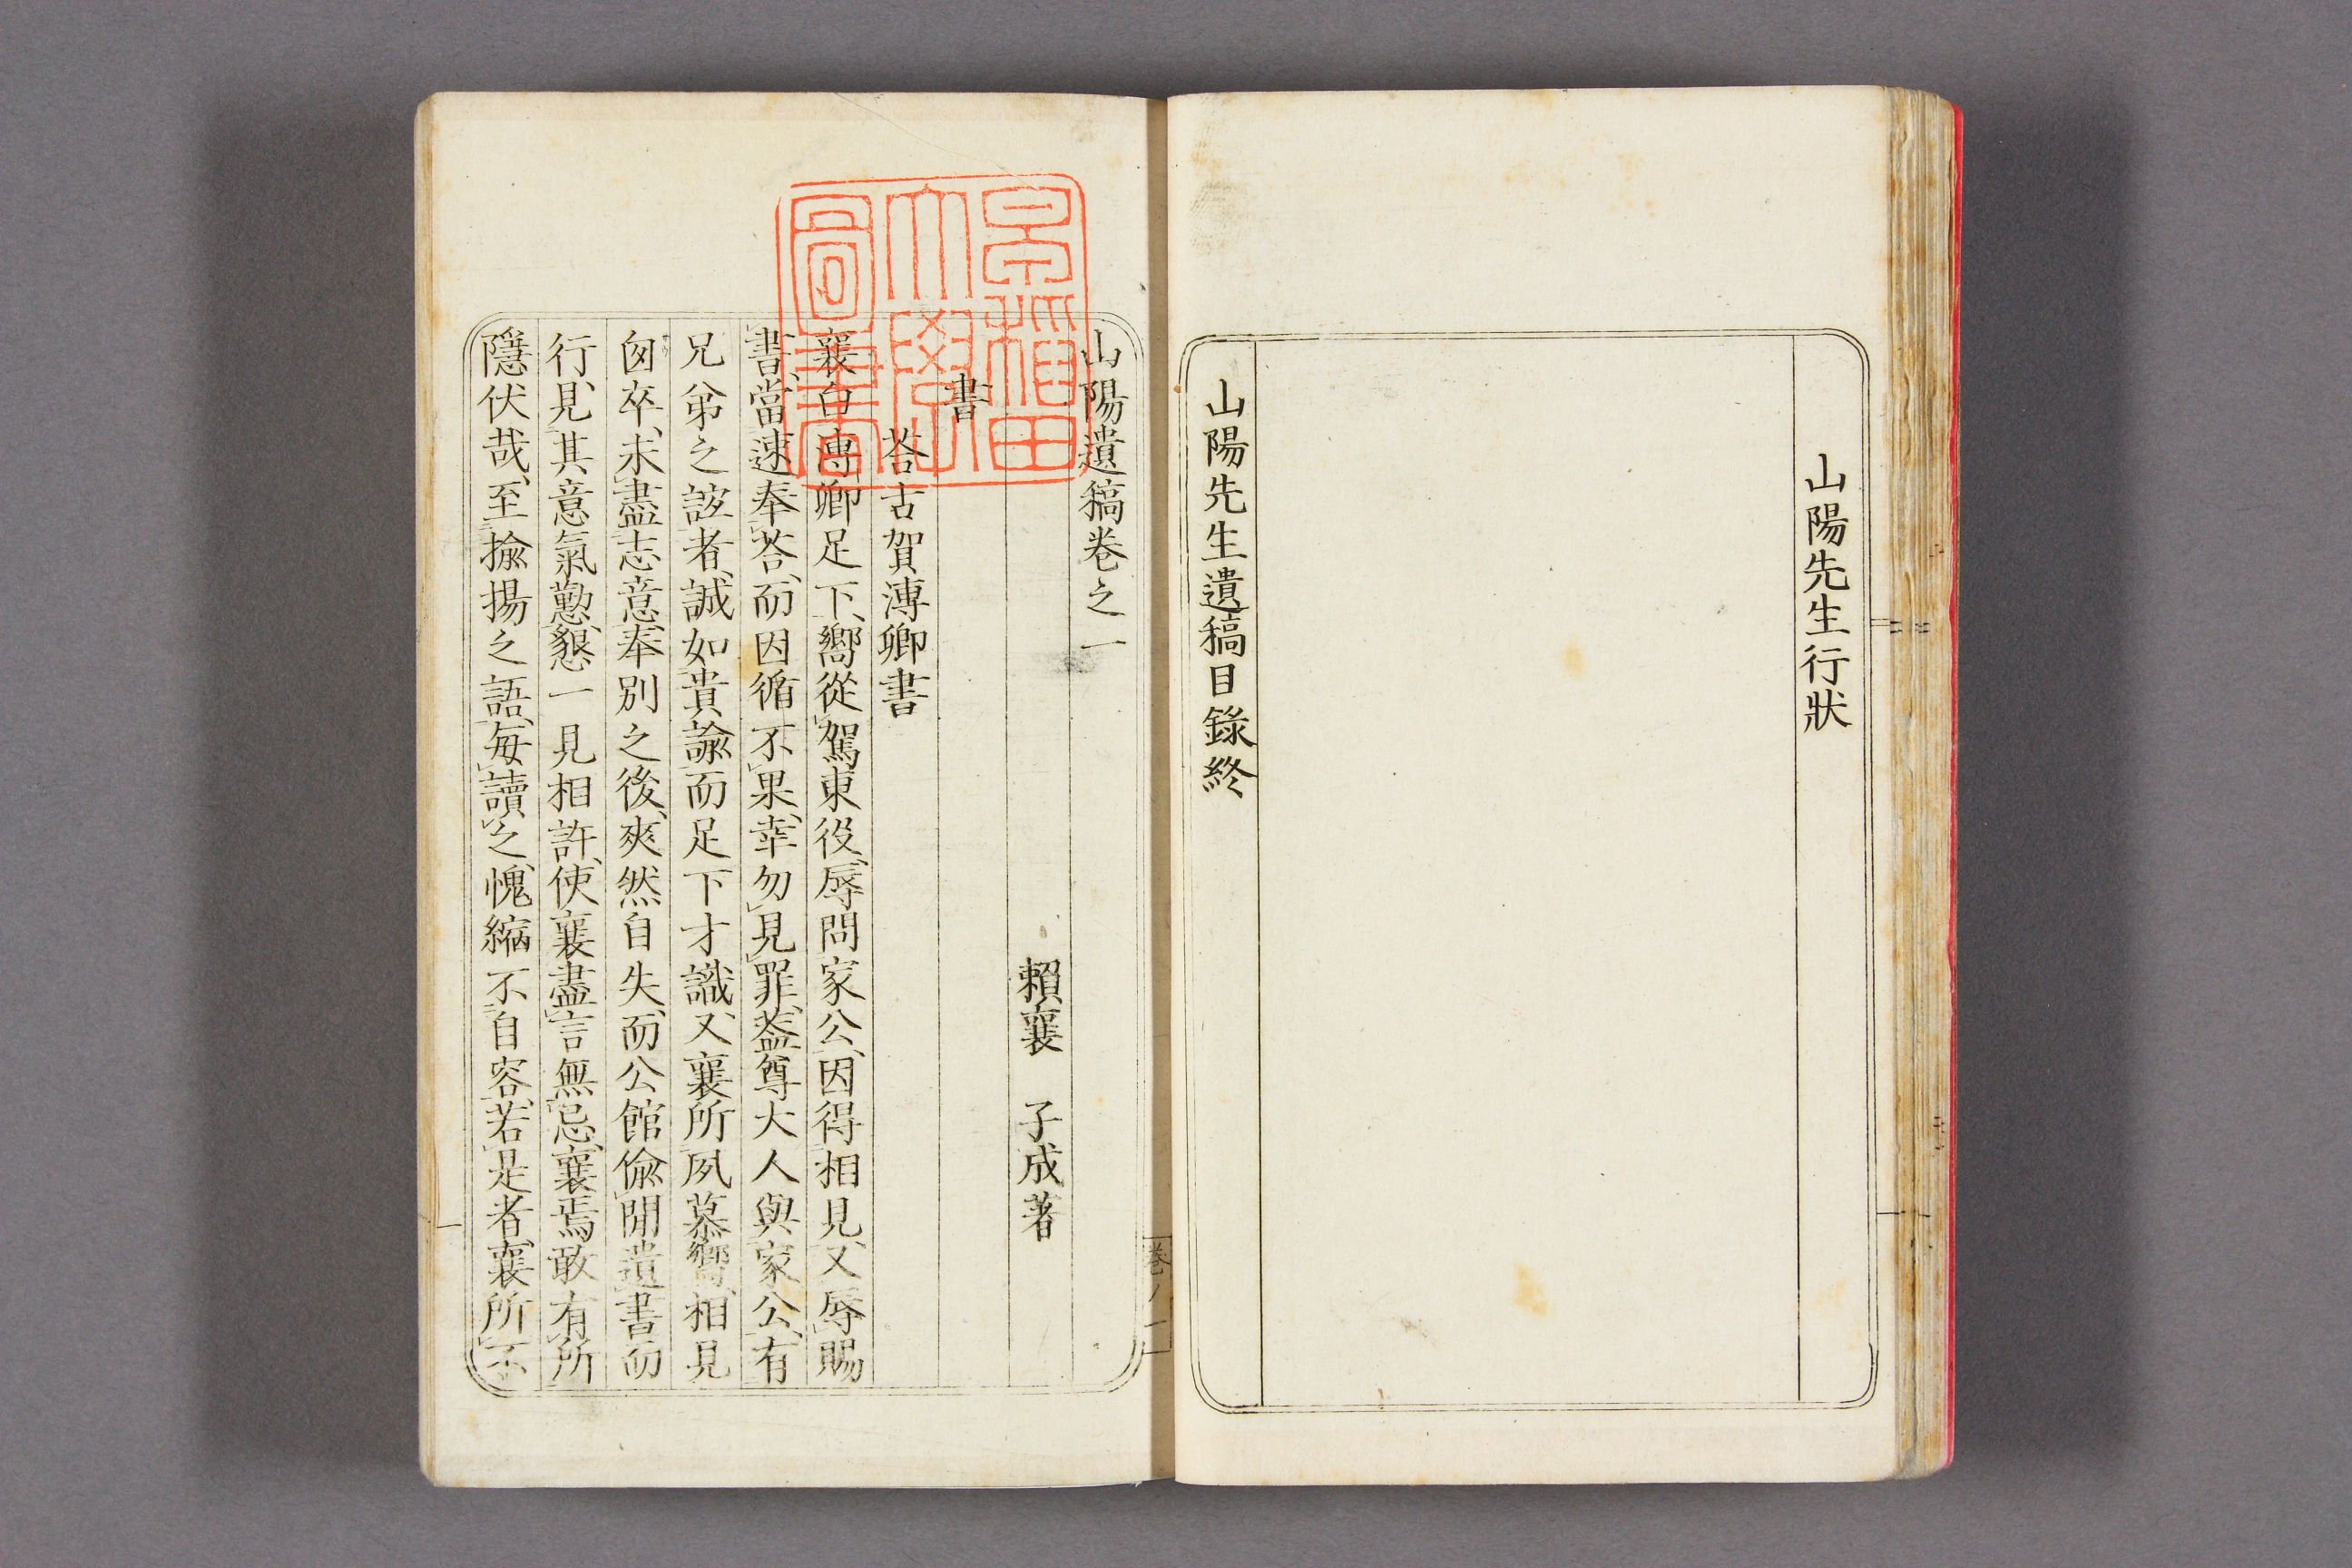 山陽先生行狀
山陽先生遺稿目錄終
山陽遺稿卷之一
賴襄　子成著
書
荅古賀溥卿書
襄白溥卿足下、嚮從駕東役、辱問家公、因得相見、又辱賜
書、當速奉荅、而因循不果、幸勿見罪、葢尊大人與家公、有
兄弟之誼者、誠如貴諭而足下才識、又襄所夙慕嚮、相見
匆卒、未盡志意、奉別之後、爽然自失、而公館偸閒遺書而
行、見其意氣懃懇、一見相許、使襄盡言無忌、襄焉敢有所
隱伏哉、至揄揚之語、每讀之、愧縮不自容、若是者、襄所不
卷ノ一
早稻田大學圖書